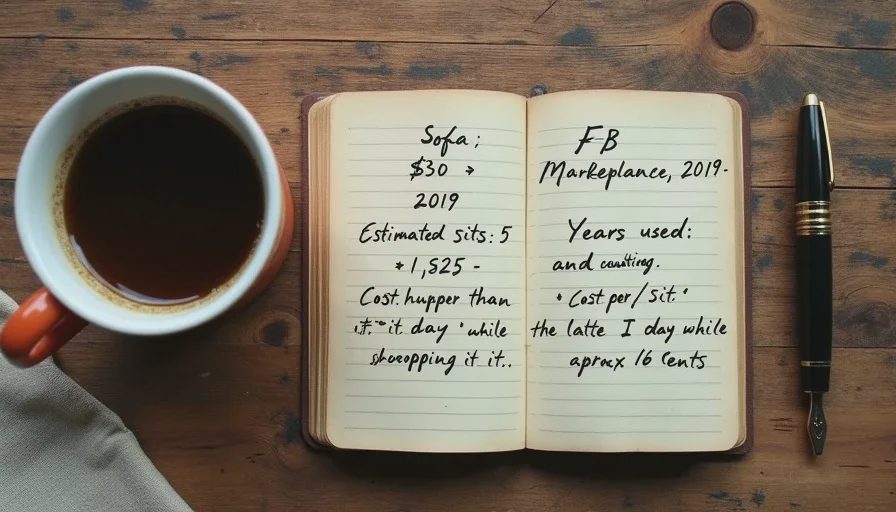 Sofa;
$30 →
2019
Estimated sits: 5
1,525 -
Cost. hupper than
it day while
it it..
FB
Markeplance, 2019-
Years used:
and counting.
• Cost per/sit."
the latte I day while
aprox 16 Cents